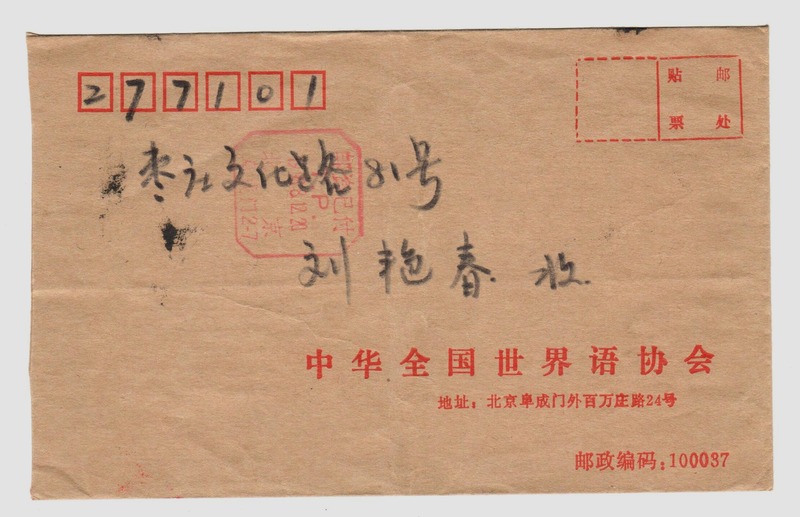 277101
贴 邮
票 处
枣庄文化路81号
刘艳春 收
中华全国世界语协会
地址：北京阜成门外百万庄路24号
邮政编码：100037